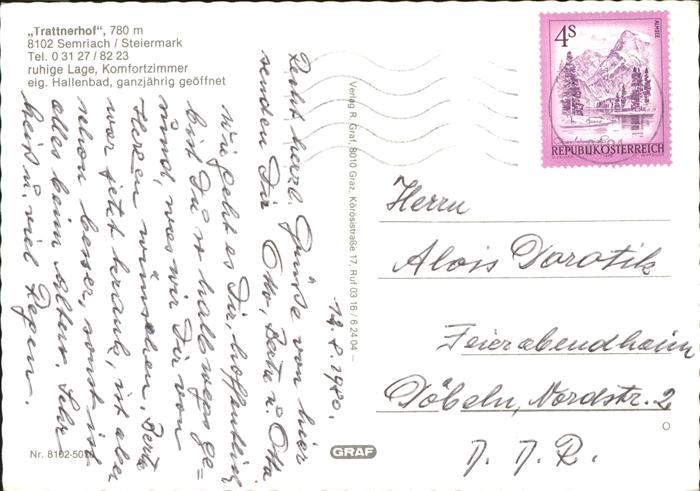 „Trattnerhof“, 780 m
8102 Semriach / Steiermark
Tel. 0 31 27 / 82 23
ruhige Lage, Komfortzimmer
eig. Hallenbad, ganzjährig geöffnet
14. 8. 1980.
Recht herzl. Grüße von hier
senden Dir Otto, Berta u. Otta.
Wie geht es Dir, hoffentlich
bist Du so halbwegs ge=
sund, was wir Dir von
Herzen wünschen. Berta
war jetzt krank, ist aber
schon besser, sonst ist
alles beim Alten. Sehr
heiß u. viel Regen.
Nr. 8102-50
Verlag R. Graf, 8010 Graz, Körösistraße 17, Ruf 03 16 / 6 24 04
GRAF
4S
ALMSEE
REPUBLIK ÖSTERREICH
Herrn
Alois Dorotik
Feierabendheim
Döbeln, Nordstr. 2
D. D. R.